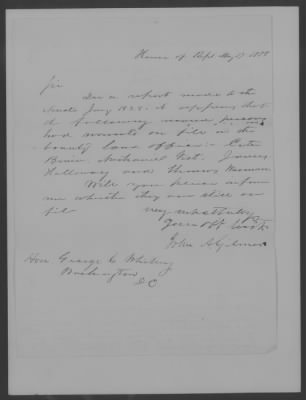 House of Rept May 17 1858
Sir
In a report made to the
Senate Jany 1828 it appears that
the following named persons
had warrants on file in the
bounty land office:
Nathaniel James
Holloway and Thomas
Will you please inform
me whether they are still on
file
very respectfully
Your obt
John A Gilmer
Hon. George C Whiting
Washington
DC